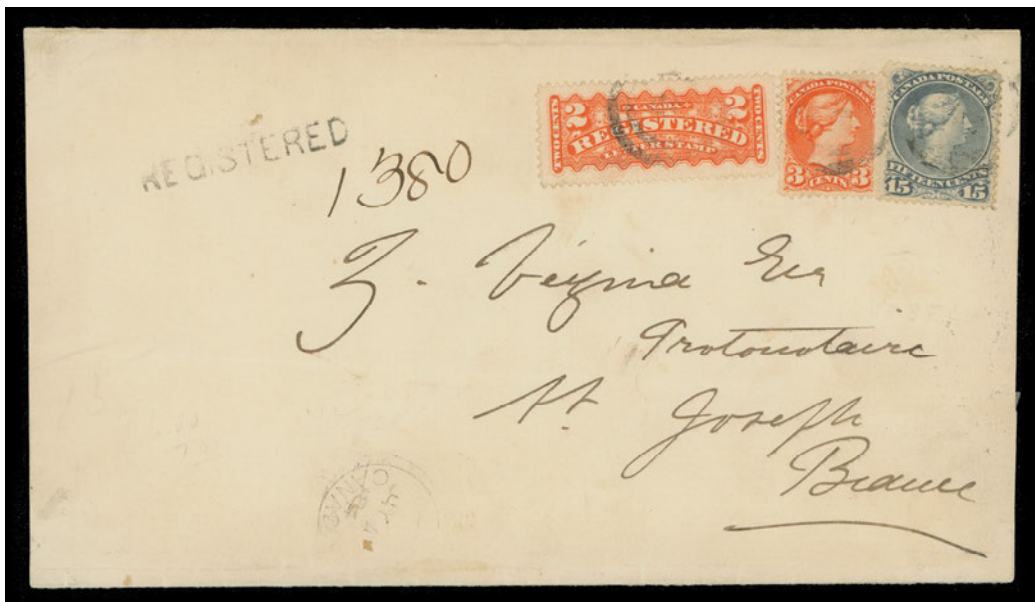 REGISTERED
1380
CANADA
2 REGISTERED 2
TWO CENTS
LETTER STAMP
TWO CENTS
CANADA POSTAGE
3 CENTS 3
CANADA POSTAGE
FIFTEEN CENTS
15 15
Z. Vézina Esr
Protonotaire
St. Joseph
Beauce
CANAD